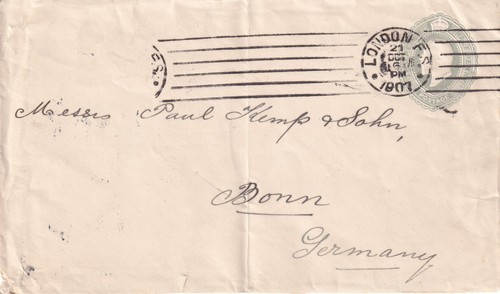 LONDON F.S.
21
DE
6
PM
1907
Messrs Paul Kemp & Sohn,
Bonn
Germany